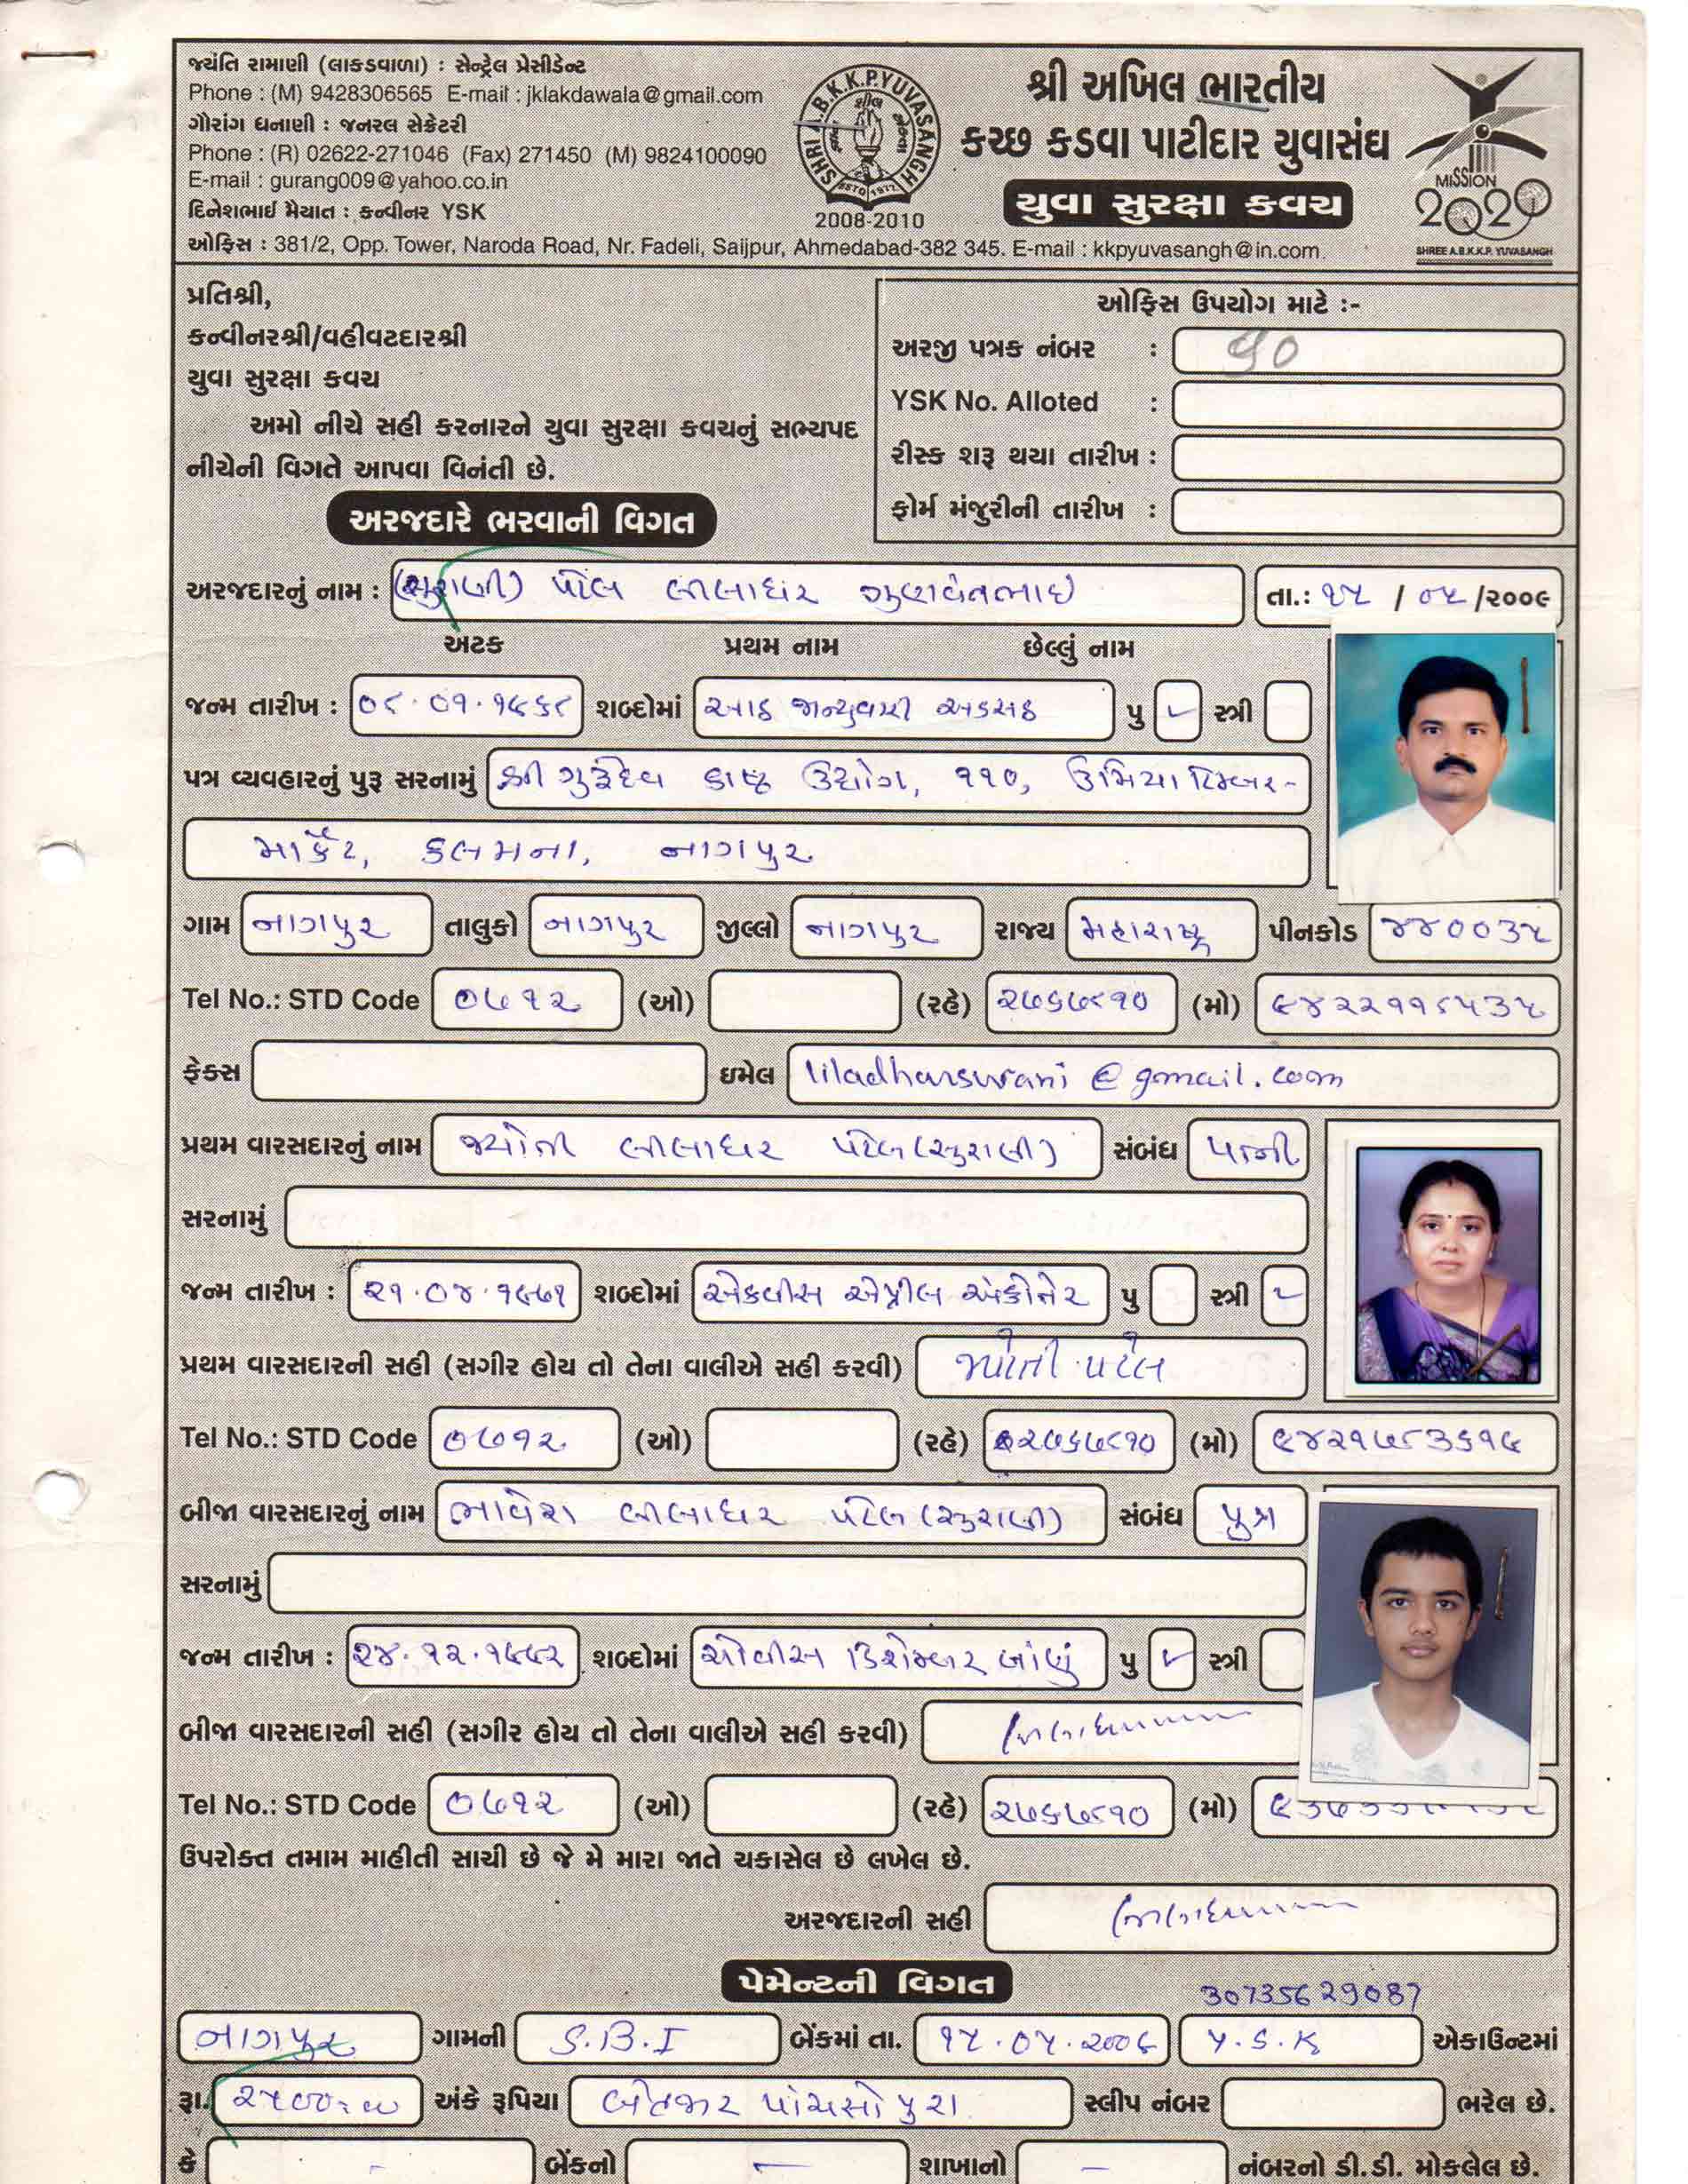 જ્યંતિ રામાણી (લાકડવાળા) : સેન્ટ્રેલ પ્રેસીડેન્ટ
Phone : (M) 9428306565 E-mail : jklakdawala@gmail.com
ગૌરાંગ ધનાણી : જનરલ સેક્રેટરી
Phone : (R) 02622-271046 (Fax) 271450 (M) 9824100090
E-mail : gurang009@yahoo.co.in
દિનેશભાઈ મૈયાત : કન્વીનર YSK
SHRI A.B.K.K.P. YUVASANGH
ESTD 1977
2008-2010
શ્રી અખિલ ભારતીય
કચ્છ કડવા પાટીદાર યુવાસંઘ
યુવા સુરક્ષા કવચ
MISSION
2020
SHREE A.B.K.K.P. YUVASANGH
ઓફિસ : 381/2, Opp. Tower, Naroda Road, Nr. Fadeli, Saijpur, Ahmedabad-382 345. E-mail : kkpyuvasangh@in.com.
પ્રતિશ્રી,
કન્વીનરશ્રી/વહીવટદારશ્રી
યુવા સુરક્ષા કવચ
અમો નીચે સહી કરનારને યુવા સુરક્ષા કવચનું સભ્યપદ
નીચેની વિગતે આપવા વિનંતી છે.
ઓફિસ ઉપયોગ માટે :-
અરજી પત્રક નંબર : ૧૦
YSK No. Alloted :
રીસ્ક શરૂ થયા તારીખ :
ફોર્મ મંજુરીની તારીખ :
અરજદારે ભરવાની વિગત
અરજદારનું નામ : (સુરાણી) પટેલ લીલાધર ગુણવંતભાઈ તા.: ૧૫ / ૦૫ /૨૦૦૯
અટક પ્રથમ નામ છેલ્લું નામ
જન્મ તારીખ : ૦૮.૦૧.૧૯૬૮ શબ્દોમાં આઠ જાન્યુવારી અડસઠ પુ ✓ સ્ત્રી
પત્ર વ્યવહારનું પુરૂ સરનામું શ્રી ગુરૂદેવ કાષ્ઠ ઉદ્યોગ, ૧૧૦, ઉમિયા ટિમ્બર-
માર્કેટ, કલમના, નાગપુર.
ગામ નાગપુર તાલુકો નાગપુર જીલ્લો નાગપુર રાજ્ય મહારાષ્ટ્ર પીનકોડ ૪૪૦૦૩૫
Tel No.: STD Code ૦૭૧૨ (ઓ) (રહે) ૨૭૬૭૮૧૦ (મો) ૯૪૨૨૧૧૮૫૩૫
ફેક્સ ઇમેલ liladharsurani@gmail.com
પ્રથમ વારસદારનું નામ જ્યોતી લીલાધર પટેલ (સુરાણી) સંબંધ પત્ની
સરનામું
જન્મ તારીખ : ૨૧.૦૪.૧૯૭૧ શબ્દોમાં એકવીસ એપ્રીલ એકોતેર પુ સ્ત્રી ✓
પ્રથમ વારસદારની સહી (સગીર હોય તો તેના વાલીએ સહી કરવી) જ્યોતી પટેલ
Tel No.: STD Code ૦૭૧૨ (ઓ) (રહે) ૨૭૬૭૮૧૦ (મો) ૯૪૨૧૭૮૩૬૧૯
બીજા વારસદારનું નામ ભાવેશ લીલાધર પટેલ (સુરાણી) સંબંધ પુત્ર
સરનામું
જન્મ તારીખ : ૨૪.૧૨.૧૯૯૨ શબ્દોમાં ચોવીસ ડિશેમ્બર બાંણું પુ ✓ સ્ત્રી
બીજા વારસદારની સહી (સગીર હોય તો તેના વાલીએ સહી કરવી)
Tel No.: STD Code ૦૭૧૨ (ઓ) (રહે) ૨૭૬૭૮૧૦ (મો)
ઉપરોક્ત તમામ માહીતી સાચી છે જે મે મારા જાતે ચકાસેલ છે લખેલ છે.
અરજદારની સહી
પેમેન્ટની વિગત 30735629087
નાગપુર ગામની S.B.I બેંકમાં તા. ૧૫.૦૫.૨૦૦૯ Y.S.K એકાઉન્ટમાં
રૂા. ૨૫૦૦=૦૦ અંકે રૂપિયા બેહજાર પાંચસો પુરા સ્લીપ નંબર ભરેલ છે.
કે - બેંકનો - શાખાનો - નંબરનો ડી.ડી. મોકલેલ છે.